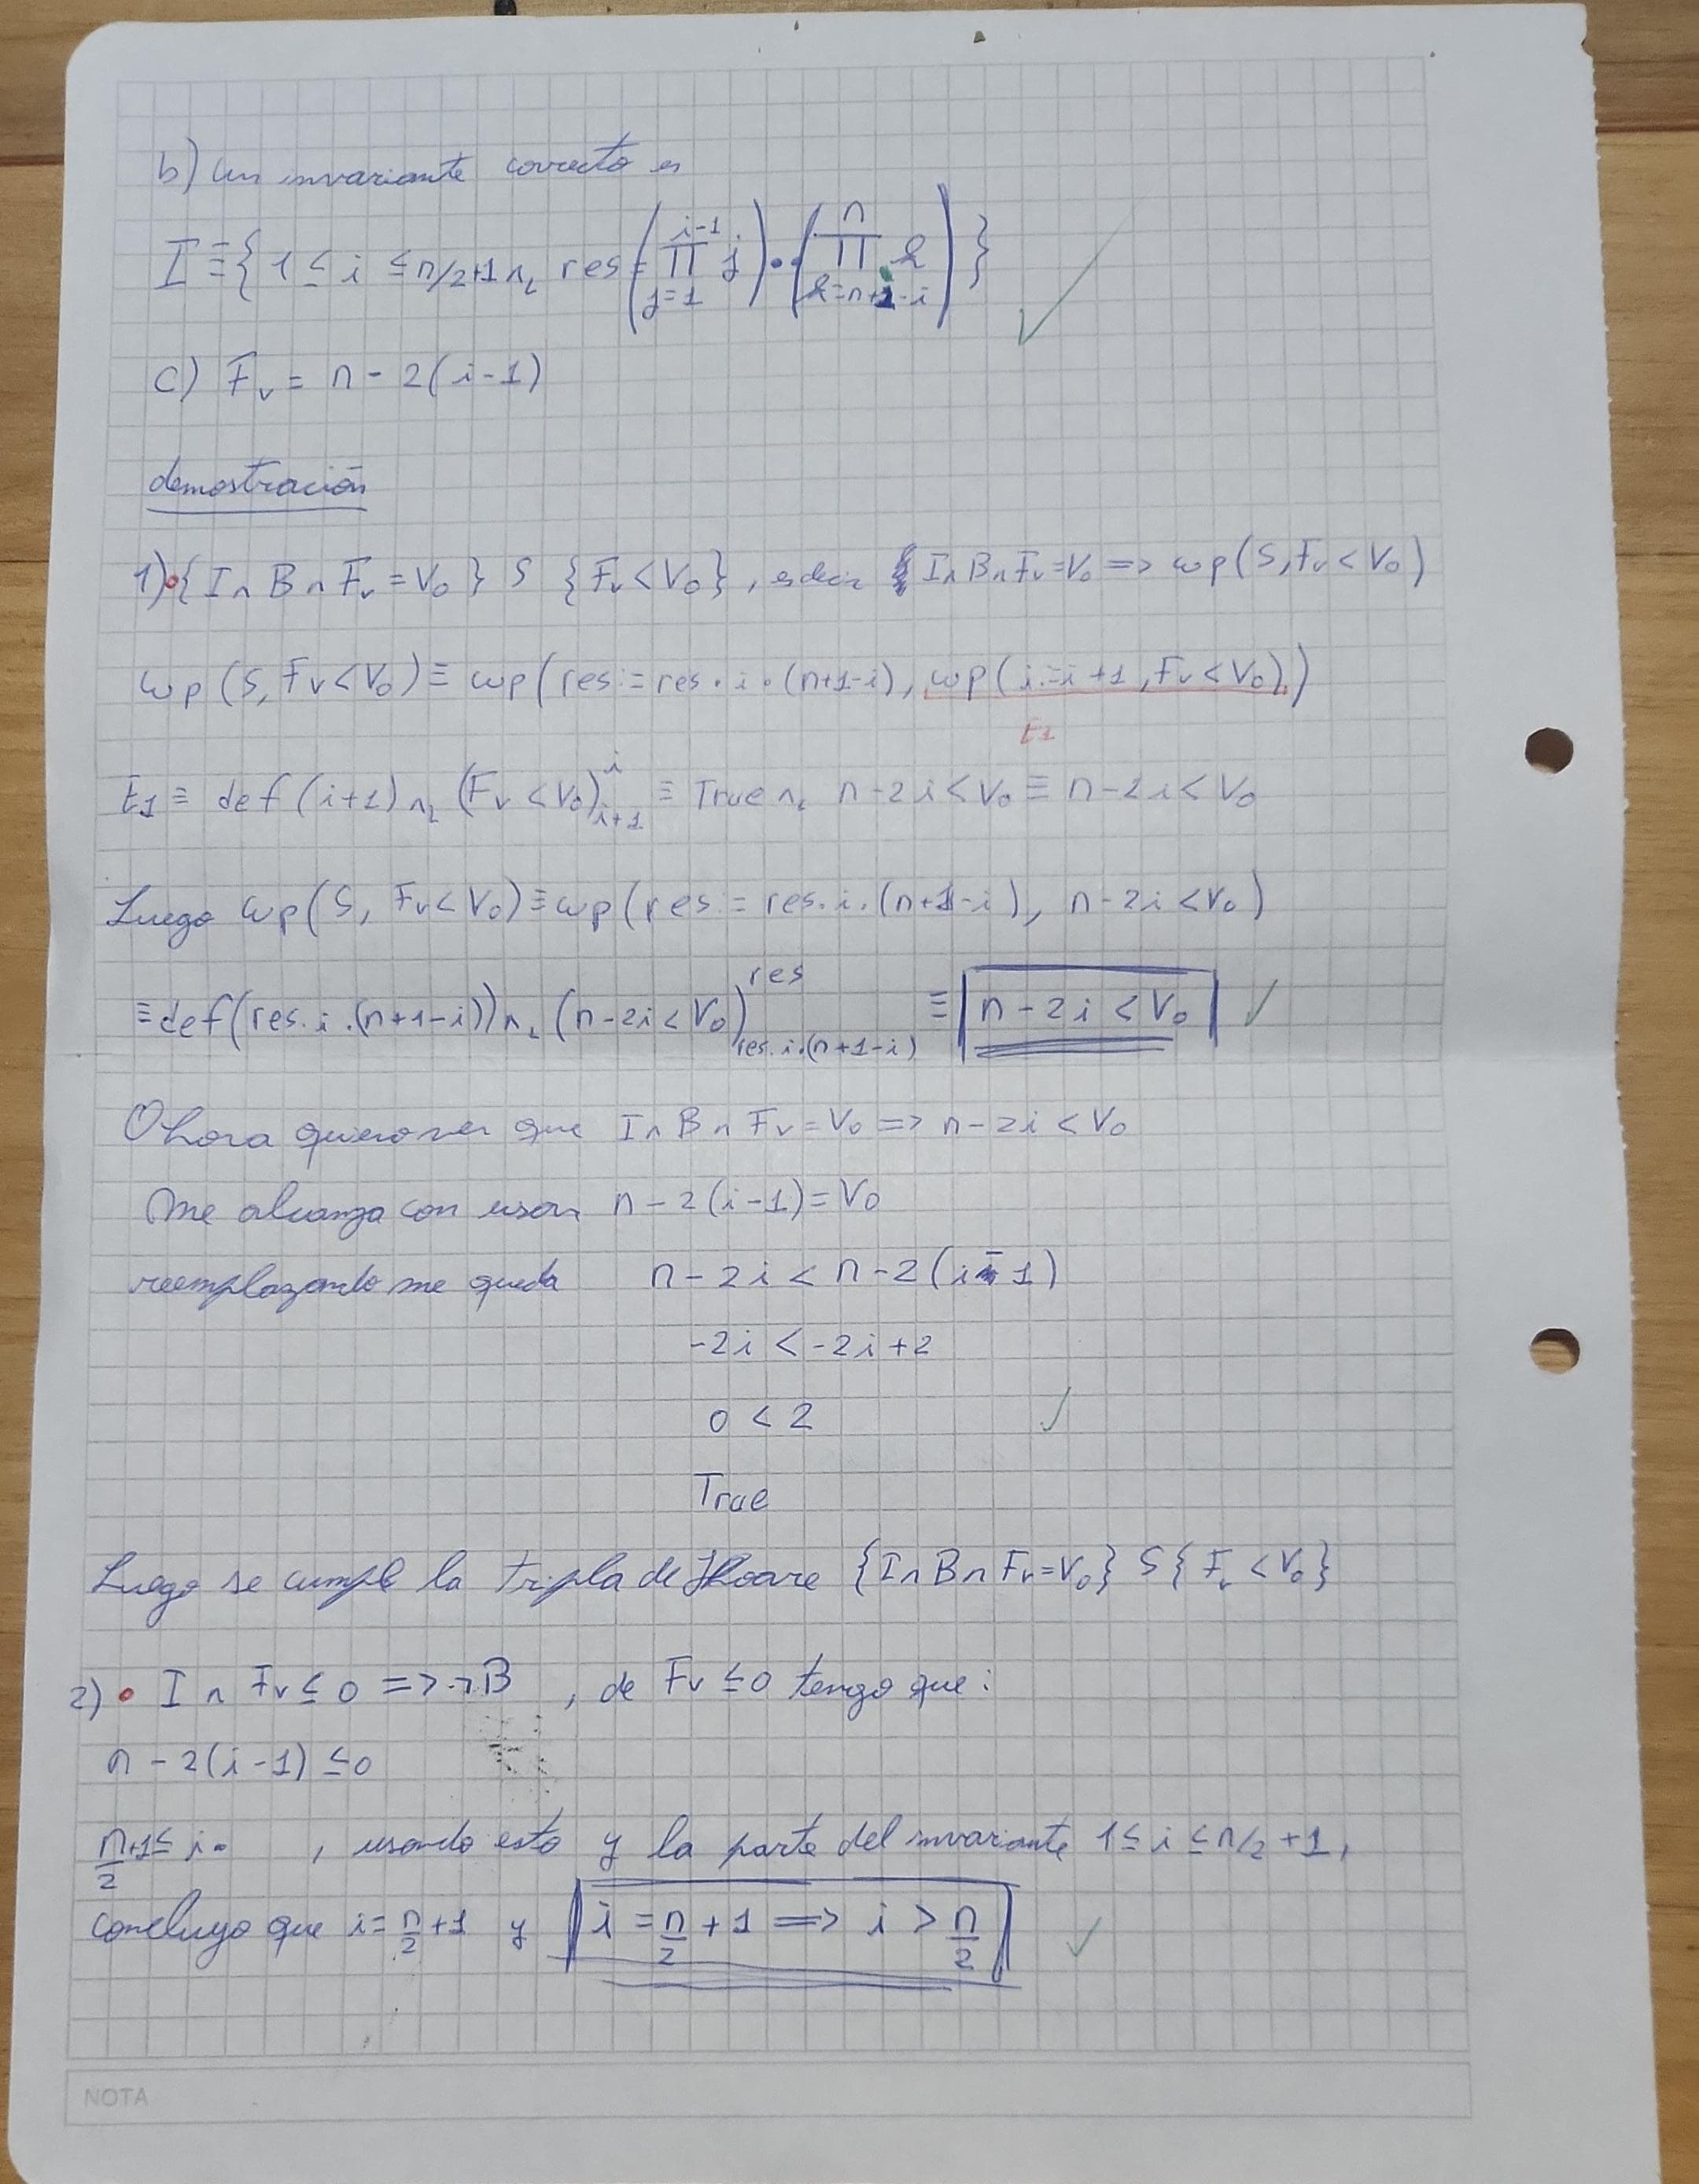 b) un invariante correcto es
I ≡ { 1 ≤ i ≤ n/2+1 ∧L res = (∏_{j=1}^{i-1} j) · (∏_{k=n+2-i}^{n} k) }
c) Fv = n - 2(i-1)
demostración
1) • {I ∧ B ∧ Fv = V₀} S {Fv < V₀}, es decir I ∧ B ∧ Fv = V₀ => wp(S, Fv < V₀)
wp(S, Fv < V₀) ≡ wp(res := res · i · (n+1-i), wp(i := i+1, Fv < V₀))
E1
E1 ≡ def(i+1) ∧L (Fv < V₀)^i_{i+1} ≡ True ∧L n-2i < V₀ ≡ n-2i < V₀
Luego wp(S, Fv < V₀) ≡ wp(res := res.i.(n+1-i), n-2i < V₀)
≡ def(res.i.(n+1-i)) ∧L (n-2i < V₀)^{res}_{res.i.(n+1-i)} ≡ n-2i < V₀ ✓
Ahora quiero ver que I ∧ B ∧ Fv = V₀ => n-2i < V₀
Me alcanza con usar n-2(i-1) = V₀
reemplazando me queda n-2i < n-2(i-1)
-2i < -2i+2
0 < 2 ✓
True
Luego se cumple la tripla de Hoare {I ∧ B ∧ Fv = V₀} S {Fv < V₀}
2) • I ∧ Fv ≤ 0 => ¬B, de Fv ≤ 0 tengo que:
n - 2(i-1) ≤ 0
n/2 + 1 ≤ i, usando esto y la parte del invariante 1 ≤ i ≤ n/2 + 1,
concluyo que i = n/2 + 1 y i = n/2 + 1 => i > n/2 ✓
NOTA